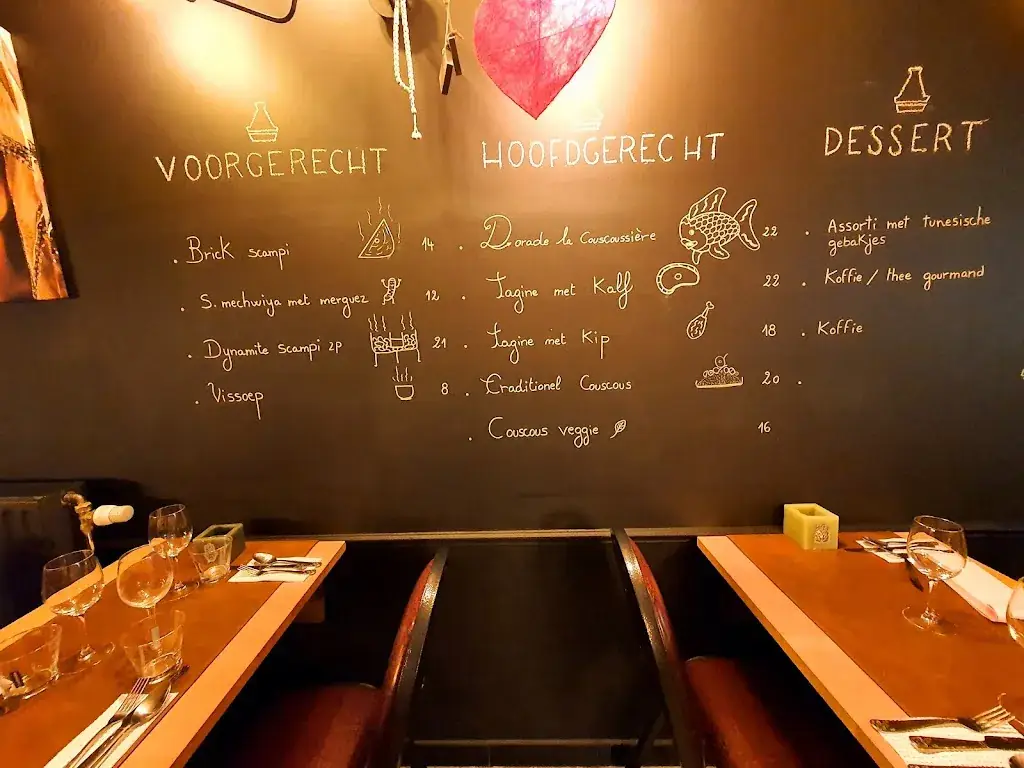 VOORGERECHT
Brick scampi 14
S. mechwiya met merguez 12
Dynamite scampi 2P 21
Vissoep 8
HOOFDGERECHT
Dorade la Couscoussière 22
Tagine met Kalf 22
Tagine met Kip 18
Traditionel Couscous 20
Couscous veggie 16
DESSERT
Assorti met tunesische
gebakjes
Koffie / thee gourmand
Koffie